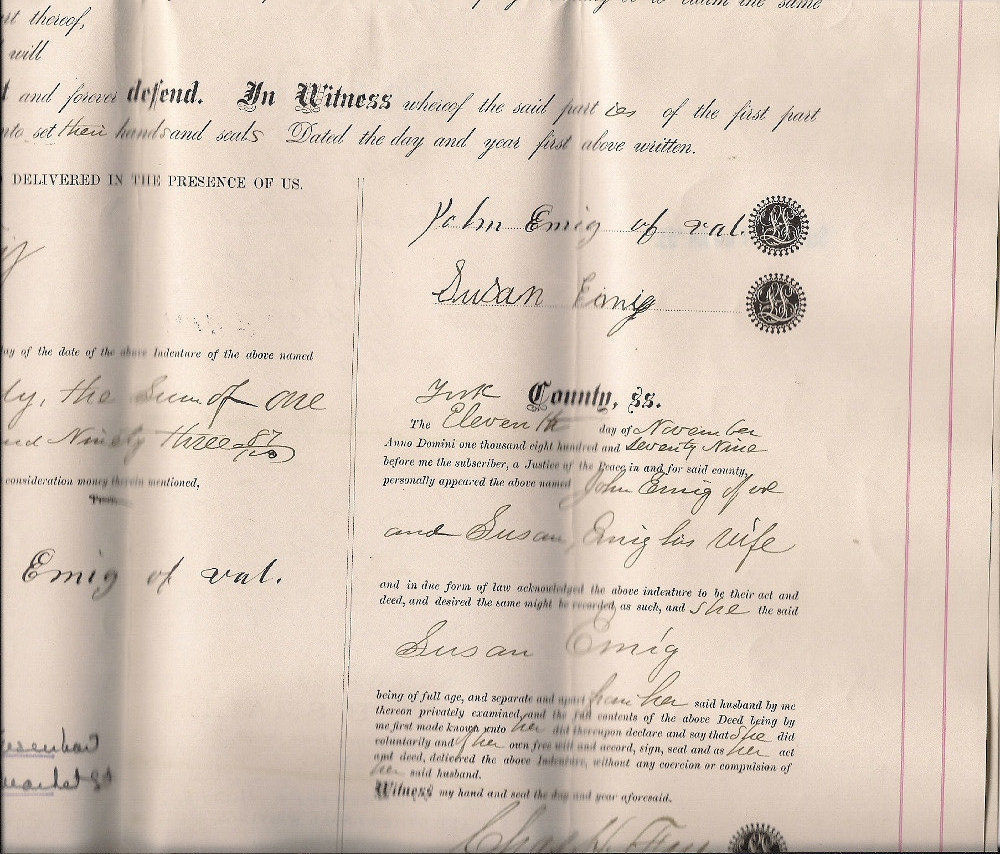 to claim the same
thereof,
will
and forever defend. In Witness whereof the said part ies of the first part
set their hands and seals Dated the day and year first above written.
DELIVERED IN THE PRESENCE OF US.
John Emig of val.
Susan Emig
day of the date of the above Indenture of the above named
the Sum of one
Ninety three 87/100
consideration money therein mentioned,
Emig of val.
York County, ss.
The Eleventh day of November
Anno Domini one thousand eight hundred and Seventy Nine
before me the subscriber, a Justice of the Peace in and for said county,
personally appeared the above named John Emig of val
and Susan Emig his wife
and in due form of law acknowledged the above indenture to be their act and
deed, and desired the same might be recorded, as such, and she the said
Susan Emig
being of full age, and separate and apart from her said husband by me
thereon privately examined, and the full contents of the above Deed being by
me first made known unto her did thereupon declare and say that she did
voluntarily and of her own free will and accord, sign, seal and as her act
and deed, delivered the above Indenture, without any coercion or compulsion of
her said husband.
Witness my hand and seal the day and year aforesaid.